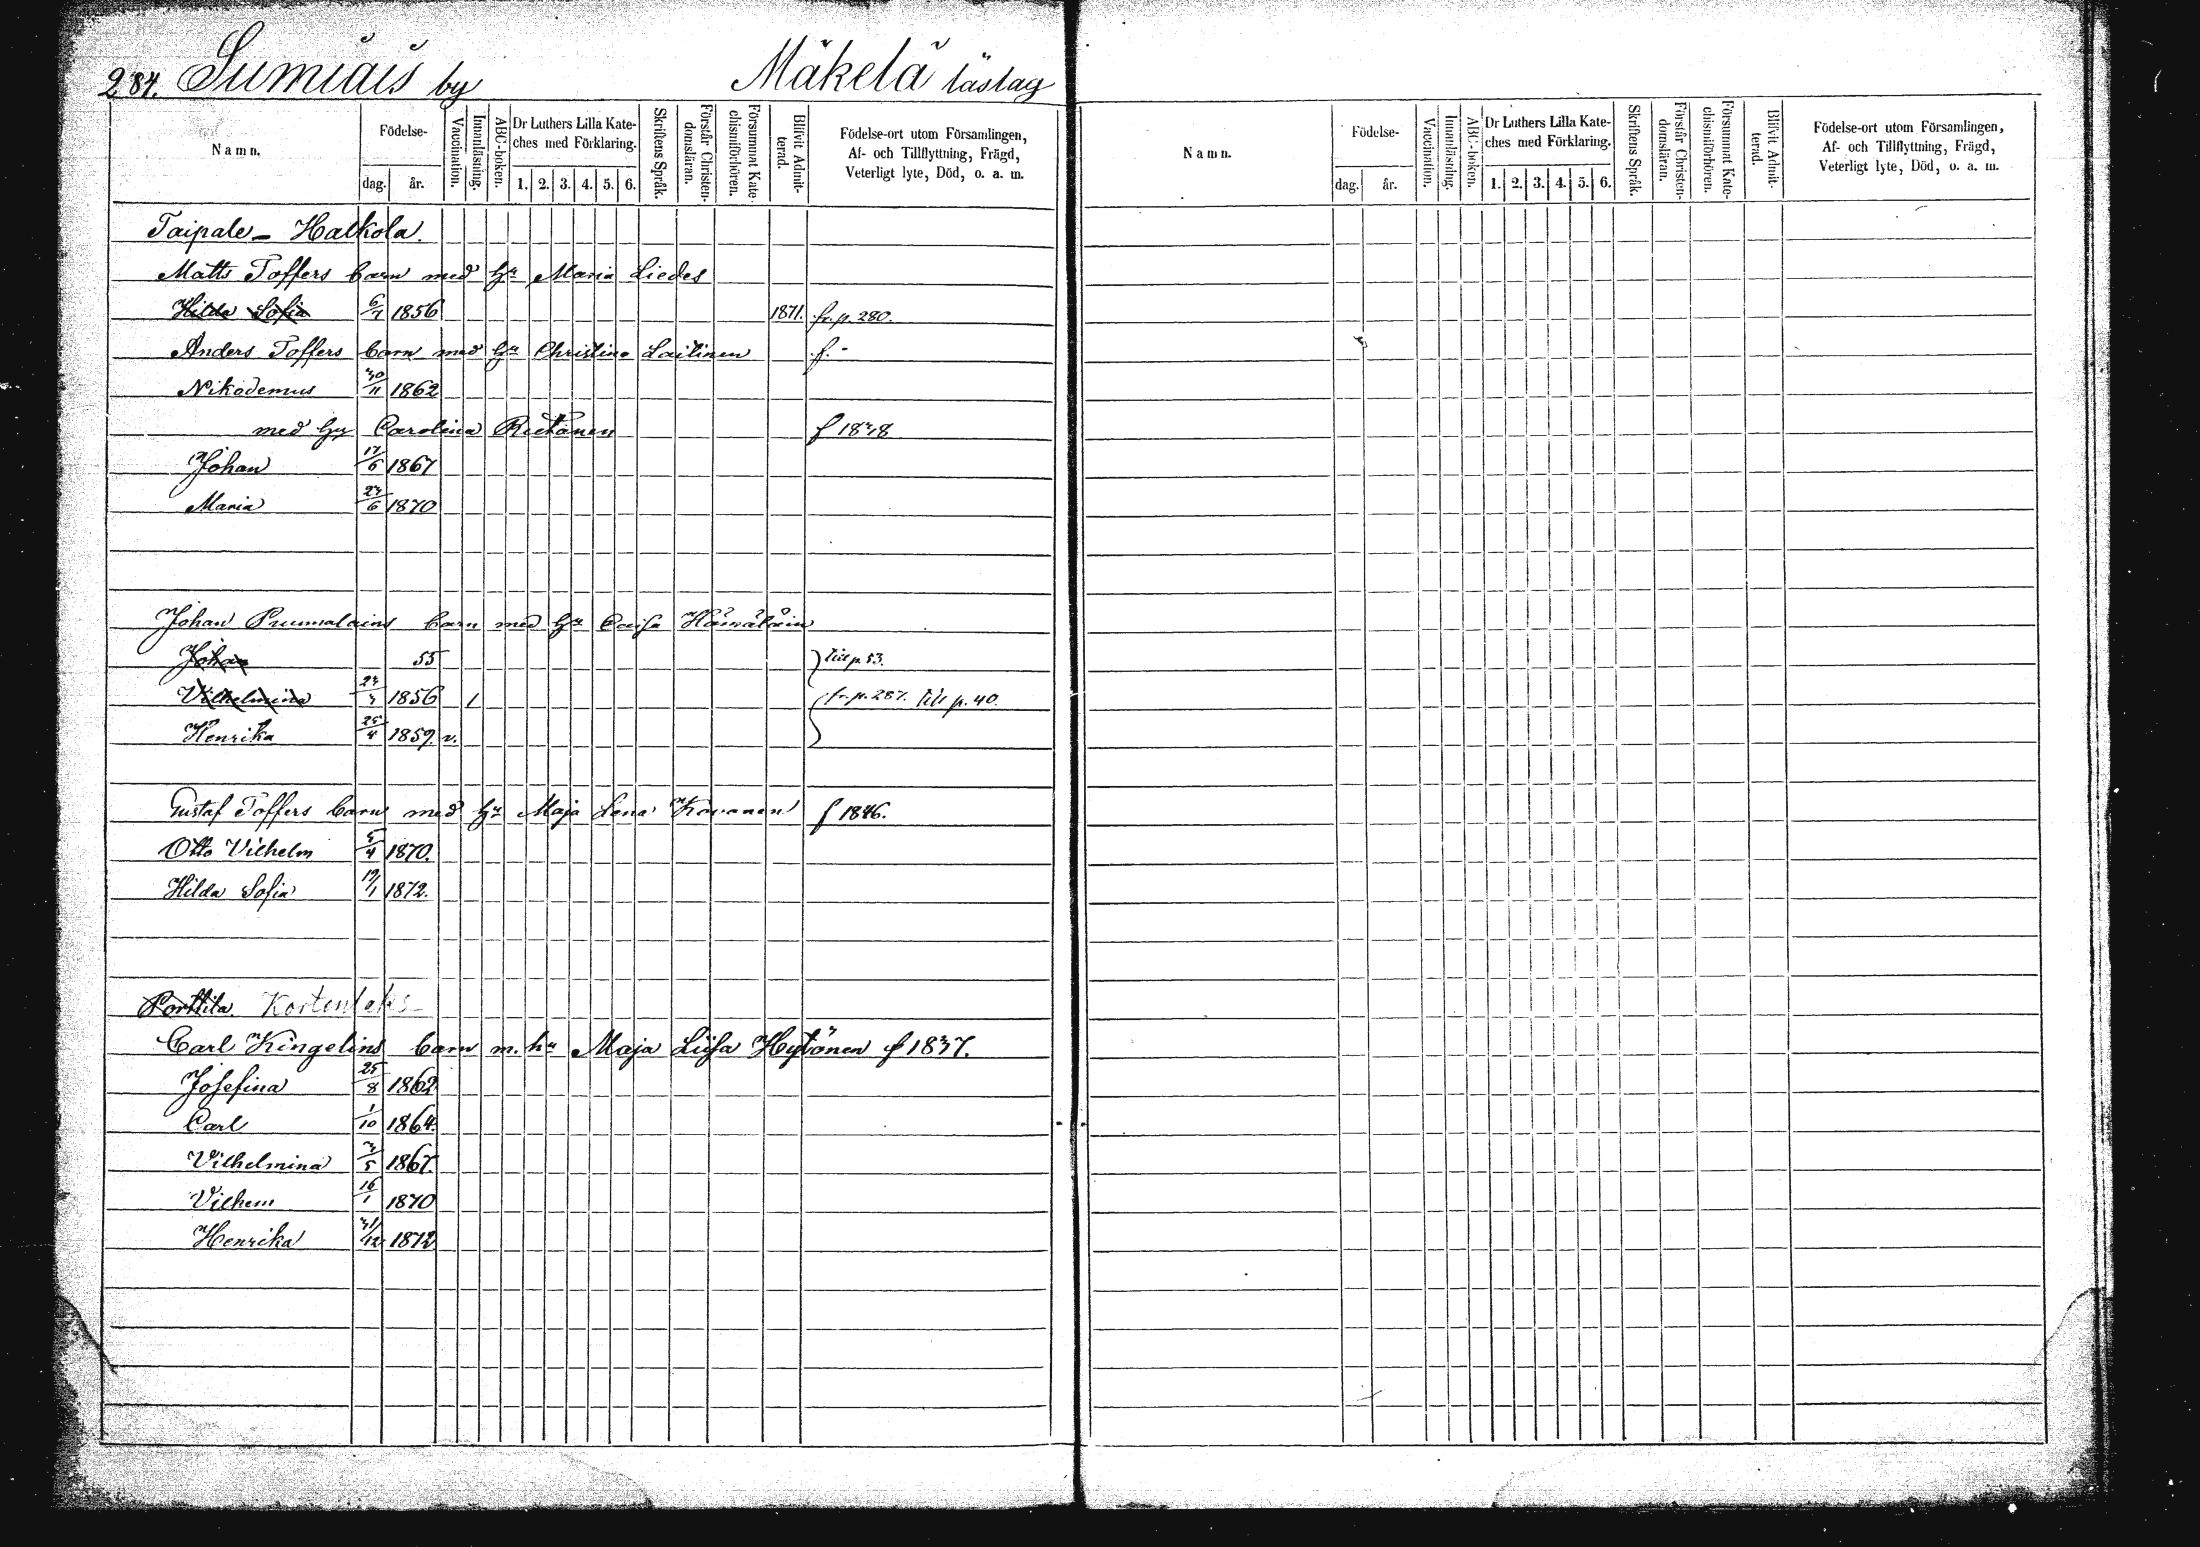 284. Sumiais by Mäkelä läslag
Namn. Födelse- dag. år. Vaccination. Innanläsning. ABC-boken. Dr Luthers Lilla Kateches med Förklaring. 1. 2. 3. 4. 5. 6. Skriftens Språk. Förstår Christendomsläran. Försummat Katechismiförhören. Blifvit Admitterad. Födelse-ort utom Församlingen, Af- och Tillflyttning, Frägd, Veterligt lyte, Död, o. a. m.
Taipale - Halkola.
Matts Toffers barn med hu Maria Liedes
Hilda Sofia 6/7 1856 1871. fr. p. 280.
Anders Toffers barn med hu Christina Laitinen f. -
Nikodemus 30/11 1862
med hu Carolina Rutanen f 1838
Johan 17/6 1867
Maria 23/6 1870
Johan Puumalains barn med hu Caisa Hämäläin
Johan 55 till p. 53.
Vilhelmina 23/3 1856 1 fr. p. 287. till p. 40.
Henrika 25/4 1859. v.
Gustaf Toffers barn med hu Maja Lena Kovanen f 1846.
Otto Vilhelm 5/4 1870.
Hilda Sofia 19/1 1872.
Porttila. Kortenlaks
Carl Kingelins barn m. hu Maja Liisa Hytönen f 1837.
Josefina 25/8 1862
Carl 1/10 1864.
Vilhelmina 3/5 1867.
Vilhem 16/1 1870
Henrika 31/12 1872
Namn. Födelse- dag. år. Vaccination. Innanläsning. ABC-boken. Dr Luthers Lilla Kateches med Förklaring. 1. 2. 3. 4. 5. 6. Skriftens Språk. Förstår Christendomsläran. Försummat Katechismiförhören. Blifvit Admitterad. Födelse-ort utom Församlingen, Af- och Tillflyttning, Frägd, Veterligt lyte, Död, o. a. m.